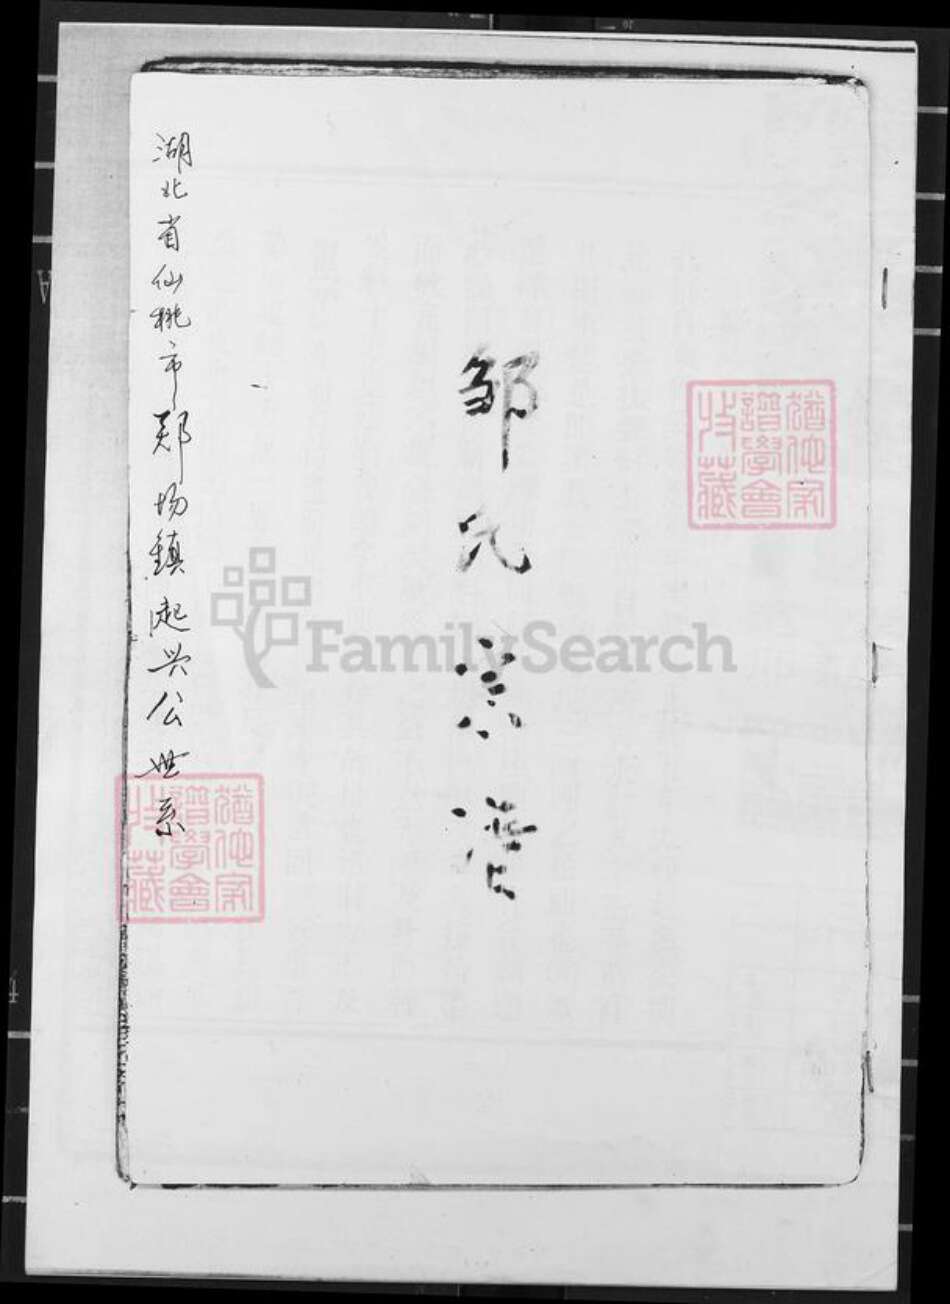 邹氏宗谱
湖北省仙桃市郑场鎮起兴公世系
猶他家
譜學會
收藏
猶他家
譜學會
收藏
FamilySearch